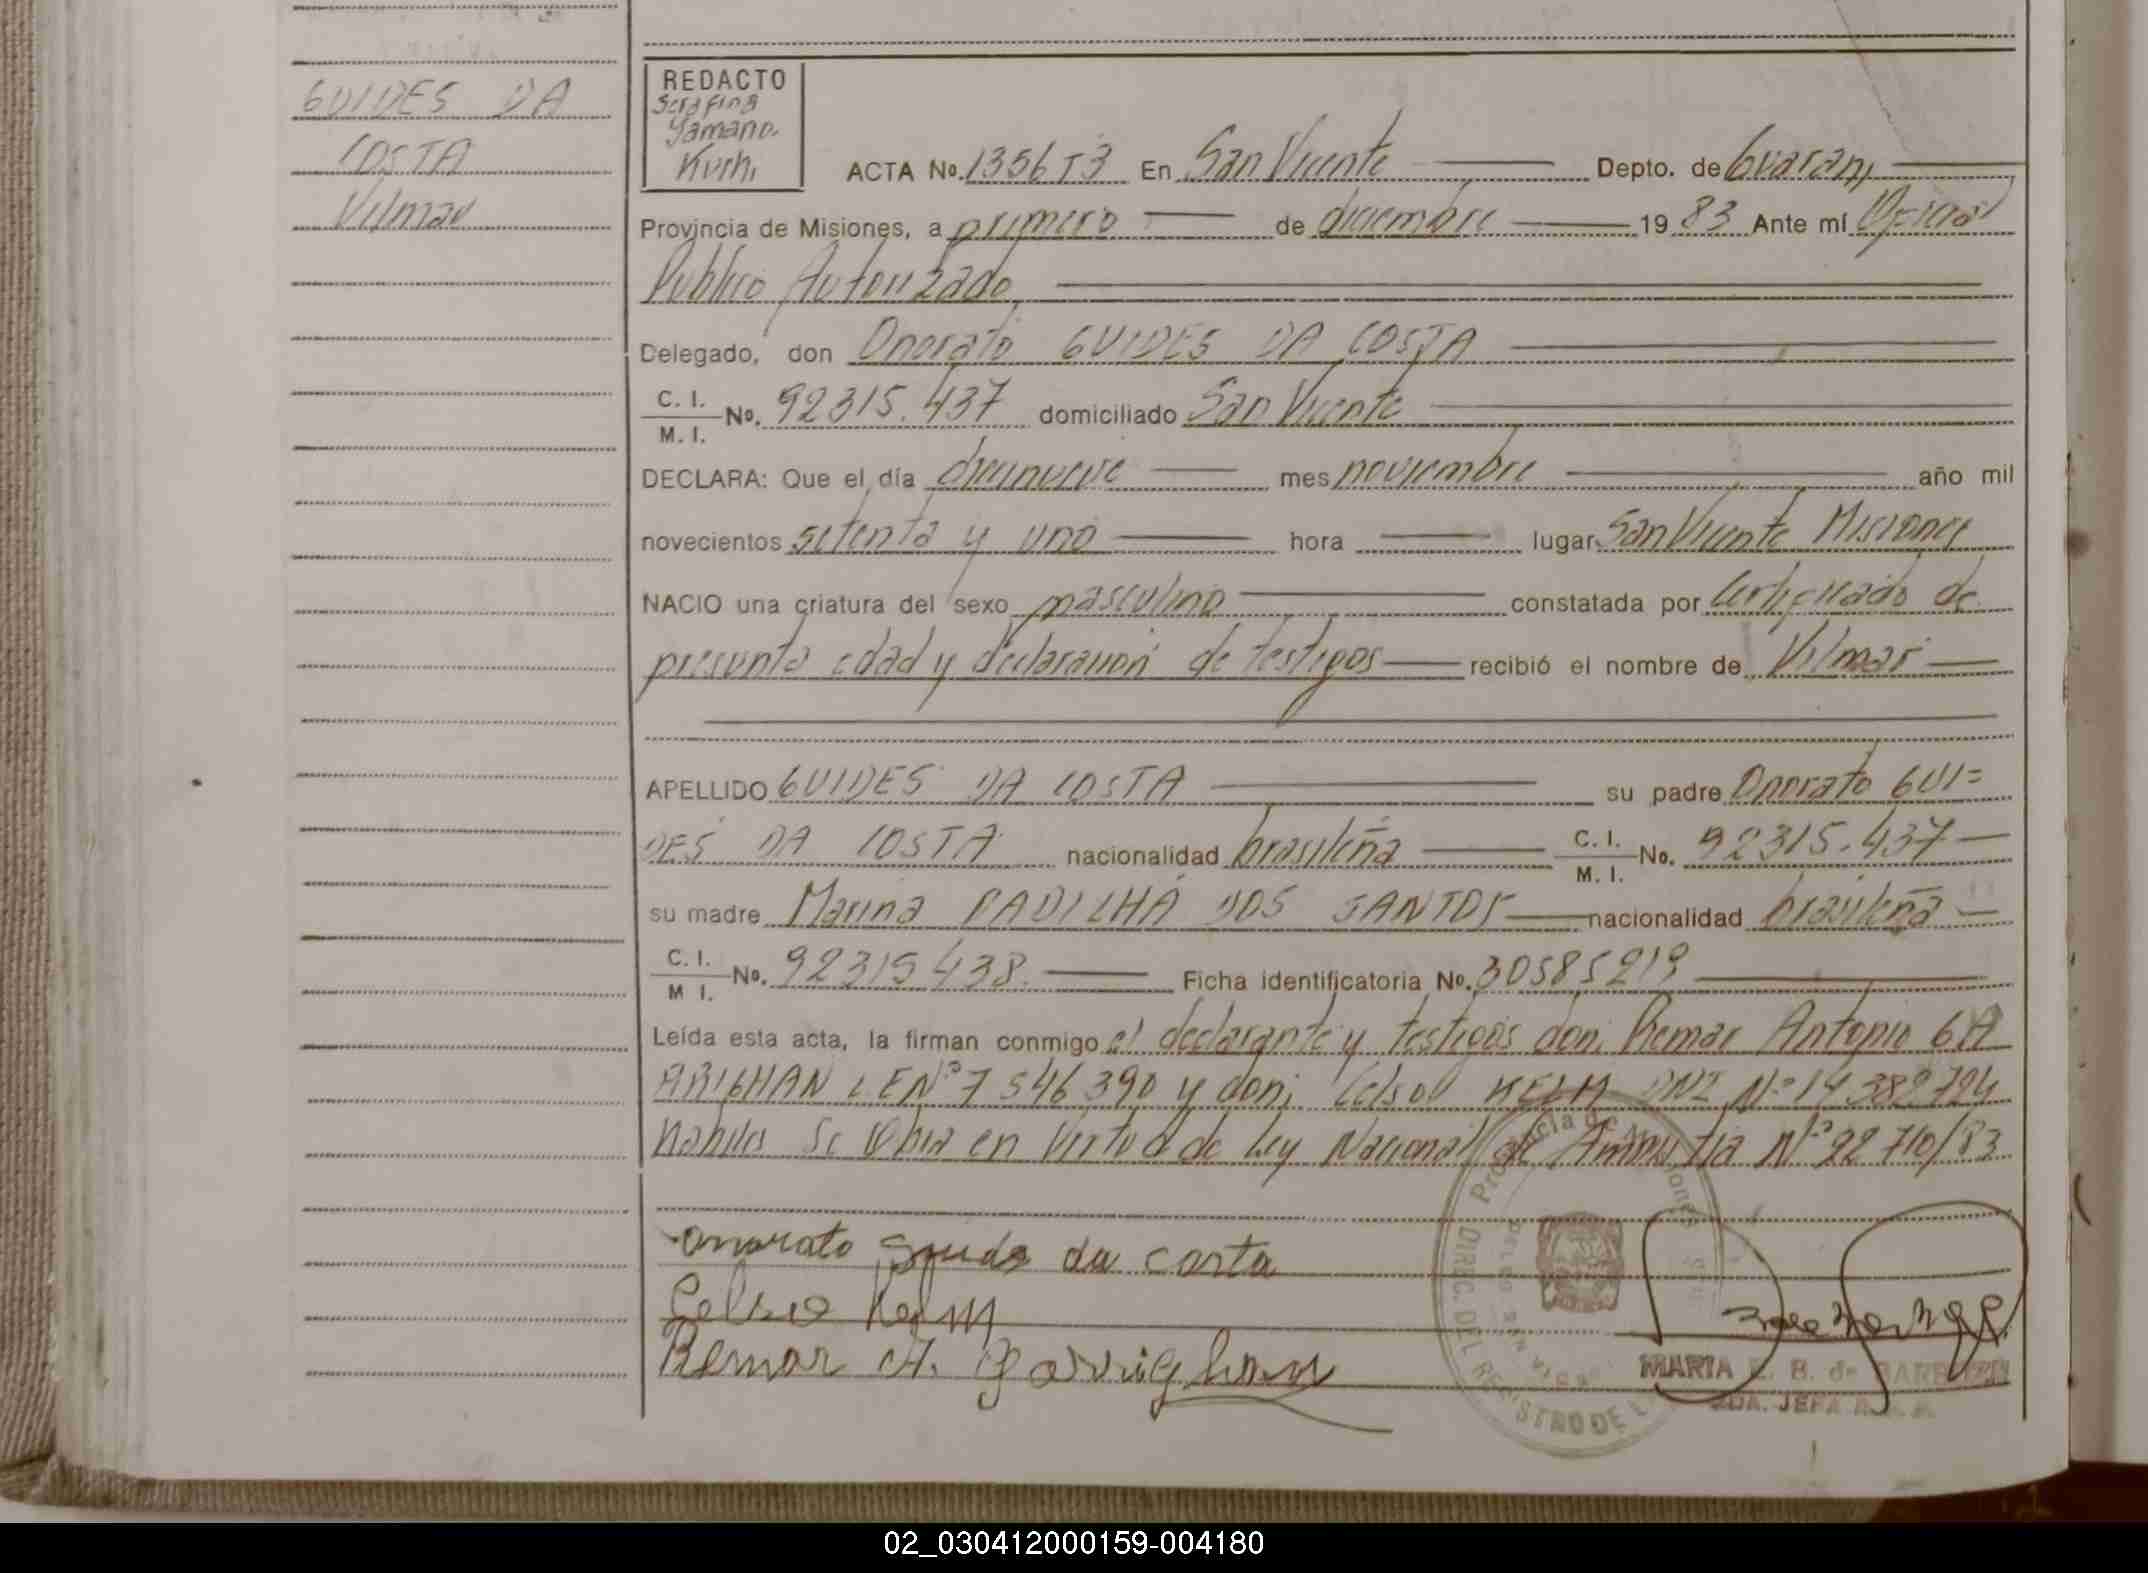 GUIDES DA
COSTA
Vilmar
REDACTO
Serafina
Yamano.
Kuhn
ACTA No. 1356 T3 En San Vicente Depto. de Guaraní
Provincia de Misiones, a primero de diciembre 19 83 Ante mí Oficial
Publico Autorizado
Delegado, don Onorato GUIDES DA COSTA
C. I.
M. I. No. 92315.437 domiciliado San Vicente
DECLARA: Que el día diecinueve mes noviembre año mil
novecientos setenta y uno hora lugar San Vicente Misiones
NACIO una criatura del sexo masculino constatada por Certificado de
presunta edad y declaracion de testigos recibió el nombre de Vilmar
APELLIDO GUIDES DA COSTA su padre Onorato GUI=
DES DA COSTA nacionalidad brasileña C. I.
M. I. No. 92315.437
su madre Marina PADILHA DOS SANTOS nacionalidad brasileña
C. I.
M I. No. 92315438. Ficha identificatoria No. 30585219
Leída esta acta, la firman conmigo el declarante y testigos don: Remar Antonio GA
ARIGHAN L.E Nº 7546390 y don: Celso KELM DNI Nº 14382724
habiles Se Obra en Virtud de Ley Nacional de Amnistia Nº 22710/83
onorato guides da costa
Celso Kelm
Remar A. Garrighan
Provincia de Misiones
DIREC. DEL REGISTRO DE L
MARIA E. B. de BARB
2DA. JEFA
02_030412000159-004180